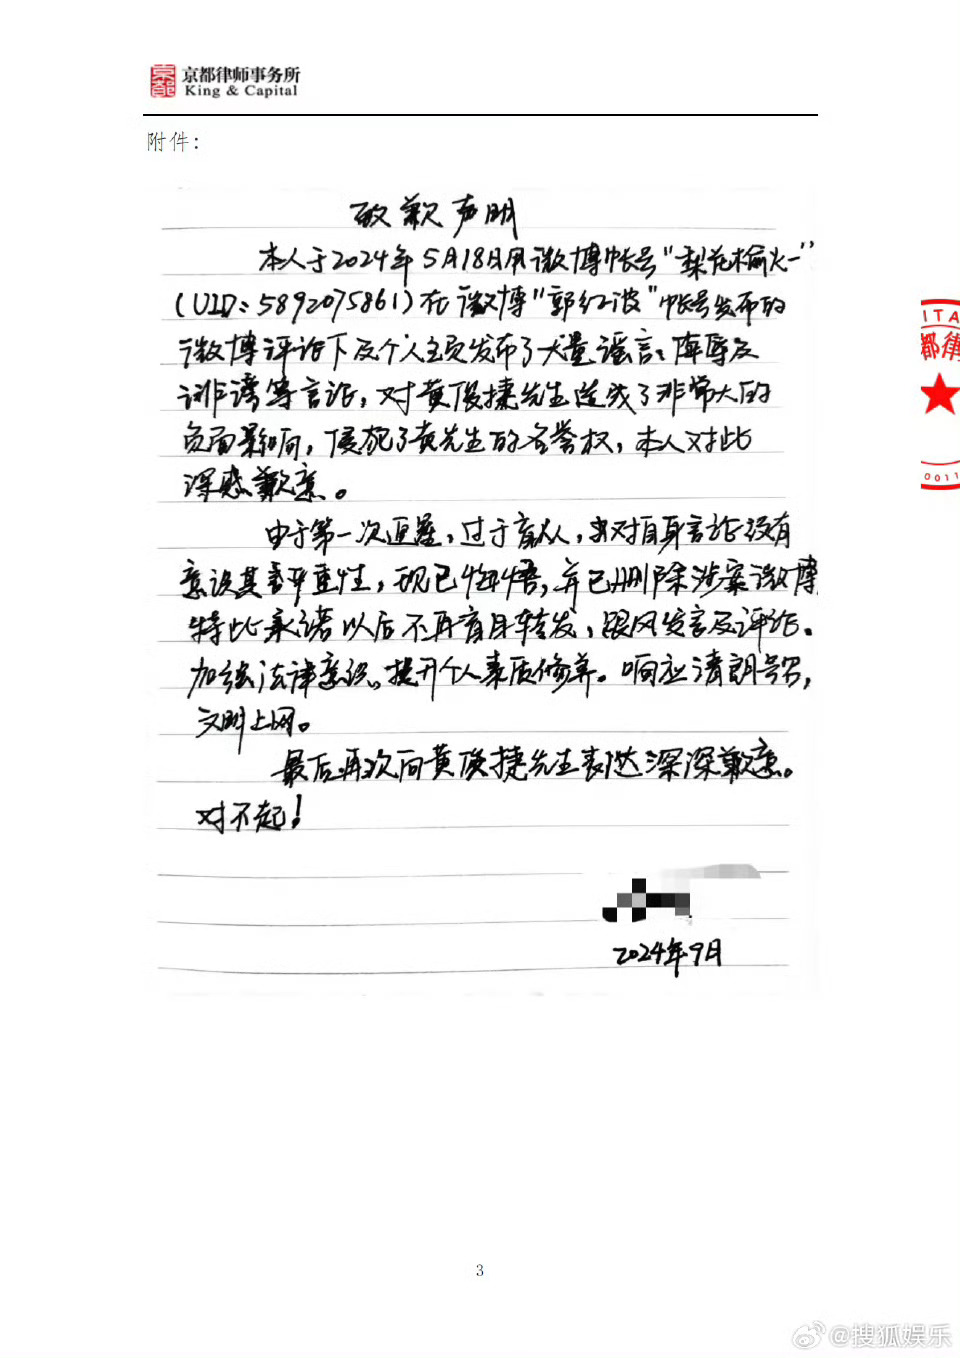 京都律师事务所
King & Capital
附件：
致歉声明
本人于2024年5月18日用微博帐号“梨花榆火一”
（UID：5892075861）在微博“郭红波”帐号发布的
微博评论下及个人主页发布了大量谣言、侮辱及
诽谤等言论，对黄俊捷先生造成了非常大的
负面影响，侵犯了黄先生的名誉权，本人对此
深感歉意。
由于第一次追星，过于盲从，对自身言论没有
意识其严重性，现已悔悟，并已删除涉案微博，
特此承诺以后不再盲目转发，跟风发言及评论。
加强法律意识。提升个人素质修养。响应清朗号召，
文明上网。
最后再次向黄俊捷先生表达深深歉意。
对不起！
2024年9月
ITA
都律
0011
3
@搜狐娱乐